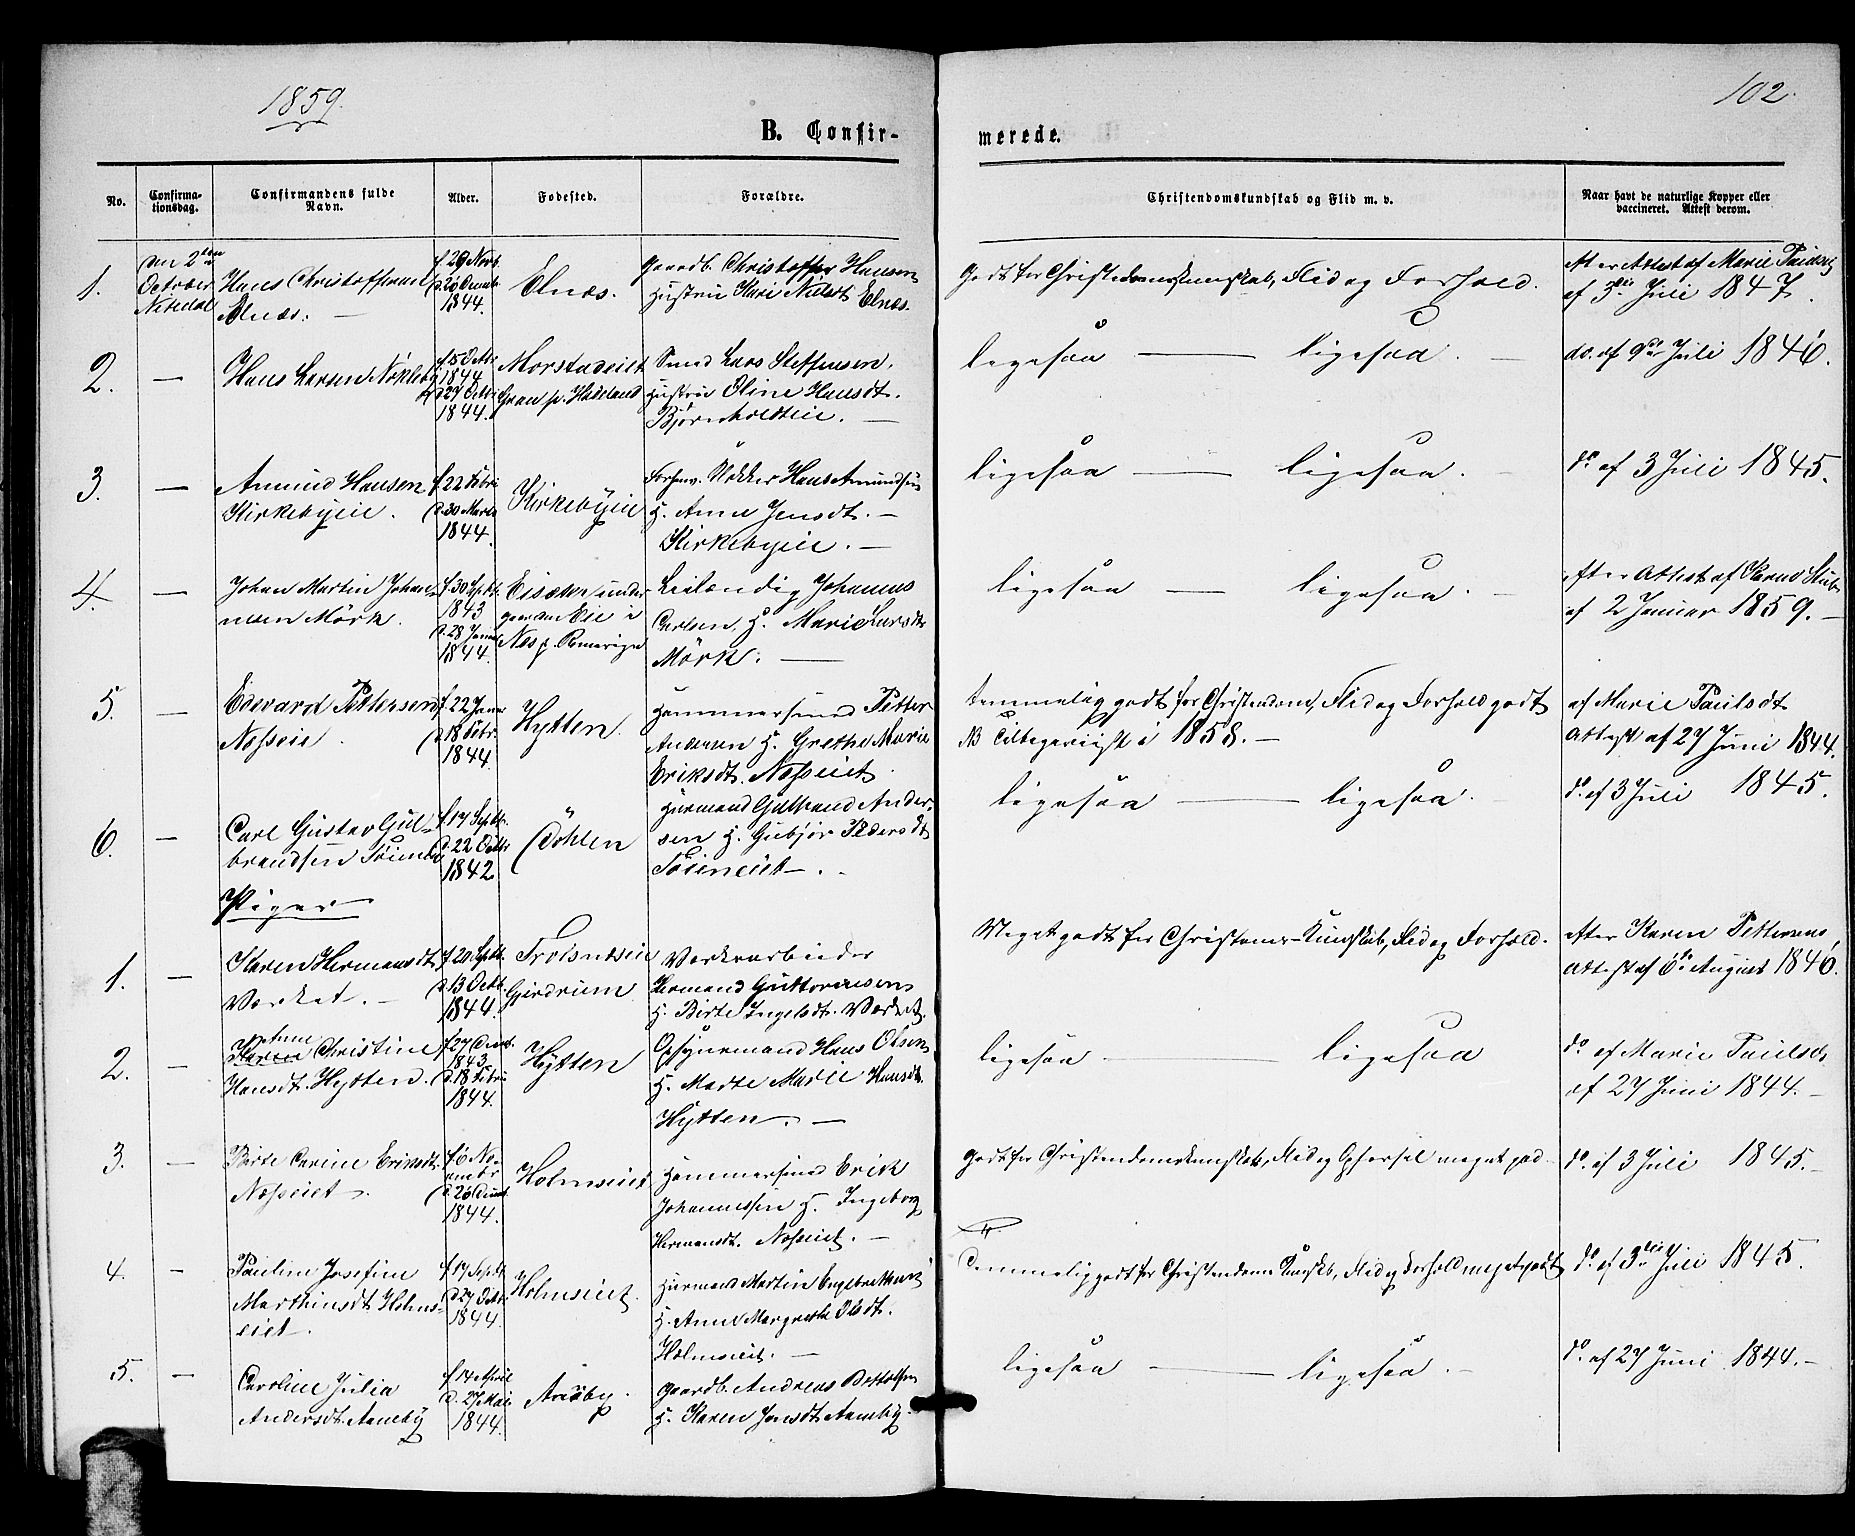 1859.
102.
B. Confir-
merede.
No.
Confirma-
tionsdag.
Confirmandens fulde
Navn.
Alder.
Fødested.
Forældre.
Christendomskundskab og Flid m. v.
Naar havt de naturlige Kopper eller
vaccineret. Attest derom.
1.
den 2den
October
Nitedal
Hans Christoffersen
Elnæs. —
f. 29 Novb.
d. 26 Decemb.
1844.
Elnæs.
Gaardb. Christoffer Hansen
Hustrue Kari Nielsdt Elnæs.
Godt for Christendomskundskab, Flid og Forhold.
Attest af Marie Paulsdt
af 3die Juli 1847.
2.
—
Hans Larsen Nökleby
f. 5 Octbr.
1844
d. 27 Octbr
1844.
Morstadeiet
Gran p. Hadeland
Smed Lars Steffensen.
Hustrue Oline Hansdt.
Björnholteie. —
ligesaa — ligesaa. —
do. af 9de Juli 1846.
3.
—
Amund Hansen
Kirkebyeie.
f. 22 Febr
d. 30 Marts
1844.
Kirkebyeie
Forhenv. Klokker Hans Amundsen
H. Anne Jensdt. —
Kirkebyeie. —
ligesaa — ligesaa. —
do. af 3 Juli 1845.
4.
—
Johan Martin Johan-
nesen Mörk.
f. 30 Septb.
1843
d. 28 Janu
1844.
Eie i
Næs p. Romerige
Leilænding Johannes
Carlsen, H. Marie Larsdt
Mörk. —
ligesaa — ligesaa. —
efter Attest af
af 2 Januar 1859. —
5.
—
Edevard Pettersen
Næsseie.
f. 22 Janu
d. 18 Febr.
1844
Hytten.
Hammersmed Petter
Andersen H. Grethe Marie
Eriksdt. Næsseiet.
temmelig godt for Christendom, Flid og Forhold godt
NB Tilbageviist i 1858. —
af Marie Paulsdt
Attest af 27 Juni 1844.
6.
—
Carl Gustav Gul-
brandsen Töien
f. 17 Septb.
d. 22 Octbr
1842
Döhlen
Huusmand Gulbrand Ander-
sen H. Gubjör Pedersdt
Töieneiet —.
ligesaa — ligesaa.
do. af 3 Juli 1845.
Piger
1.
—
Karen Hermansdt
Værket. —
f. 20 Septb.
d. 13 Octb.
1844.
Gjerdrum
Værksarbeider
Herman Guttormsen
H. Birte Ingelsdt. Værket.
Meget godt for Christendoms-Kundskab, Flid og Forhold.
efter Karen Pettersens
Attest af 6te August 1846.
2.
—
Anne
Christine
Hansdt. Hytten.
f. 27 Decemb.
1843
d. 18 Febr
1844.
Hytten
Opsynsmand Hans Olsen
H. Marte Marie Hansdt.
Hytten. —
ligesaa — ligesaa
do. af Marie Paulsdt
af 27 Juni 1844. —
3.
—
Birte Carine Eriksdt.
Næsseiet.
f. 6 No-
vembr
d. 26 Decemb.
1844.
Holmseiet
Hammersmed Erik
Johannessen H. Ingeborg
Hermansdt. Næsseiet. —
Godt for Christendomskundskab, Flid og Opførsel meget god
do. af 3 Juli 1845. —
4.
—
Pauline Josefine
Marthinsdt. Holms-
eiet.
f. 17 Septb.
d. 27 Octbr
1844.
Holmseiet.
Huusmand Martin Engebretsen
H. Anne Margrethe Olsdt.
Holmseiet. —
Temmelig godt for Christendoms Kundskb, Flid og Forhold meget godt
do. af 3die Juli 1845.
5.
—
Caroline Julia
Andersdt. Aaneby
f. 14 April
d. 27 Mai
1844.
Aaneby.
Gaardb. Andreas
H. Karen Jensdt Aaneby.
ligesaa — ligesaa. —
do. af 27 Juni 1844. —